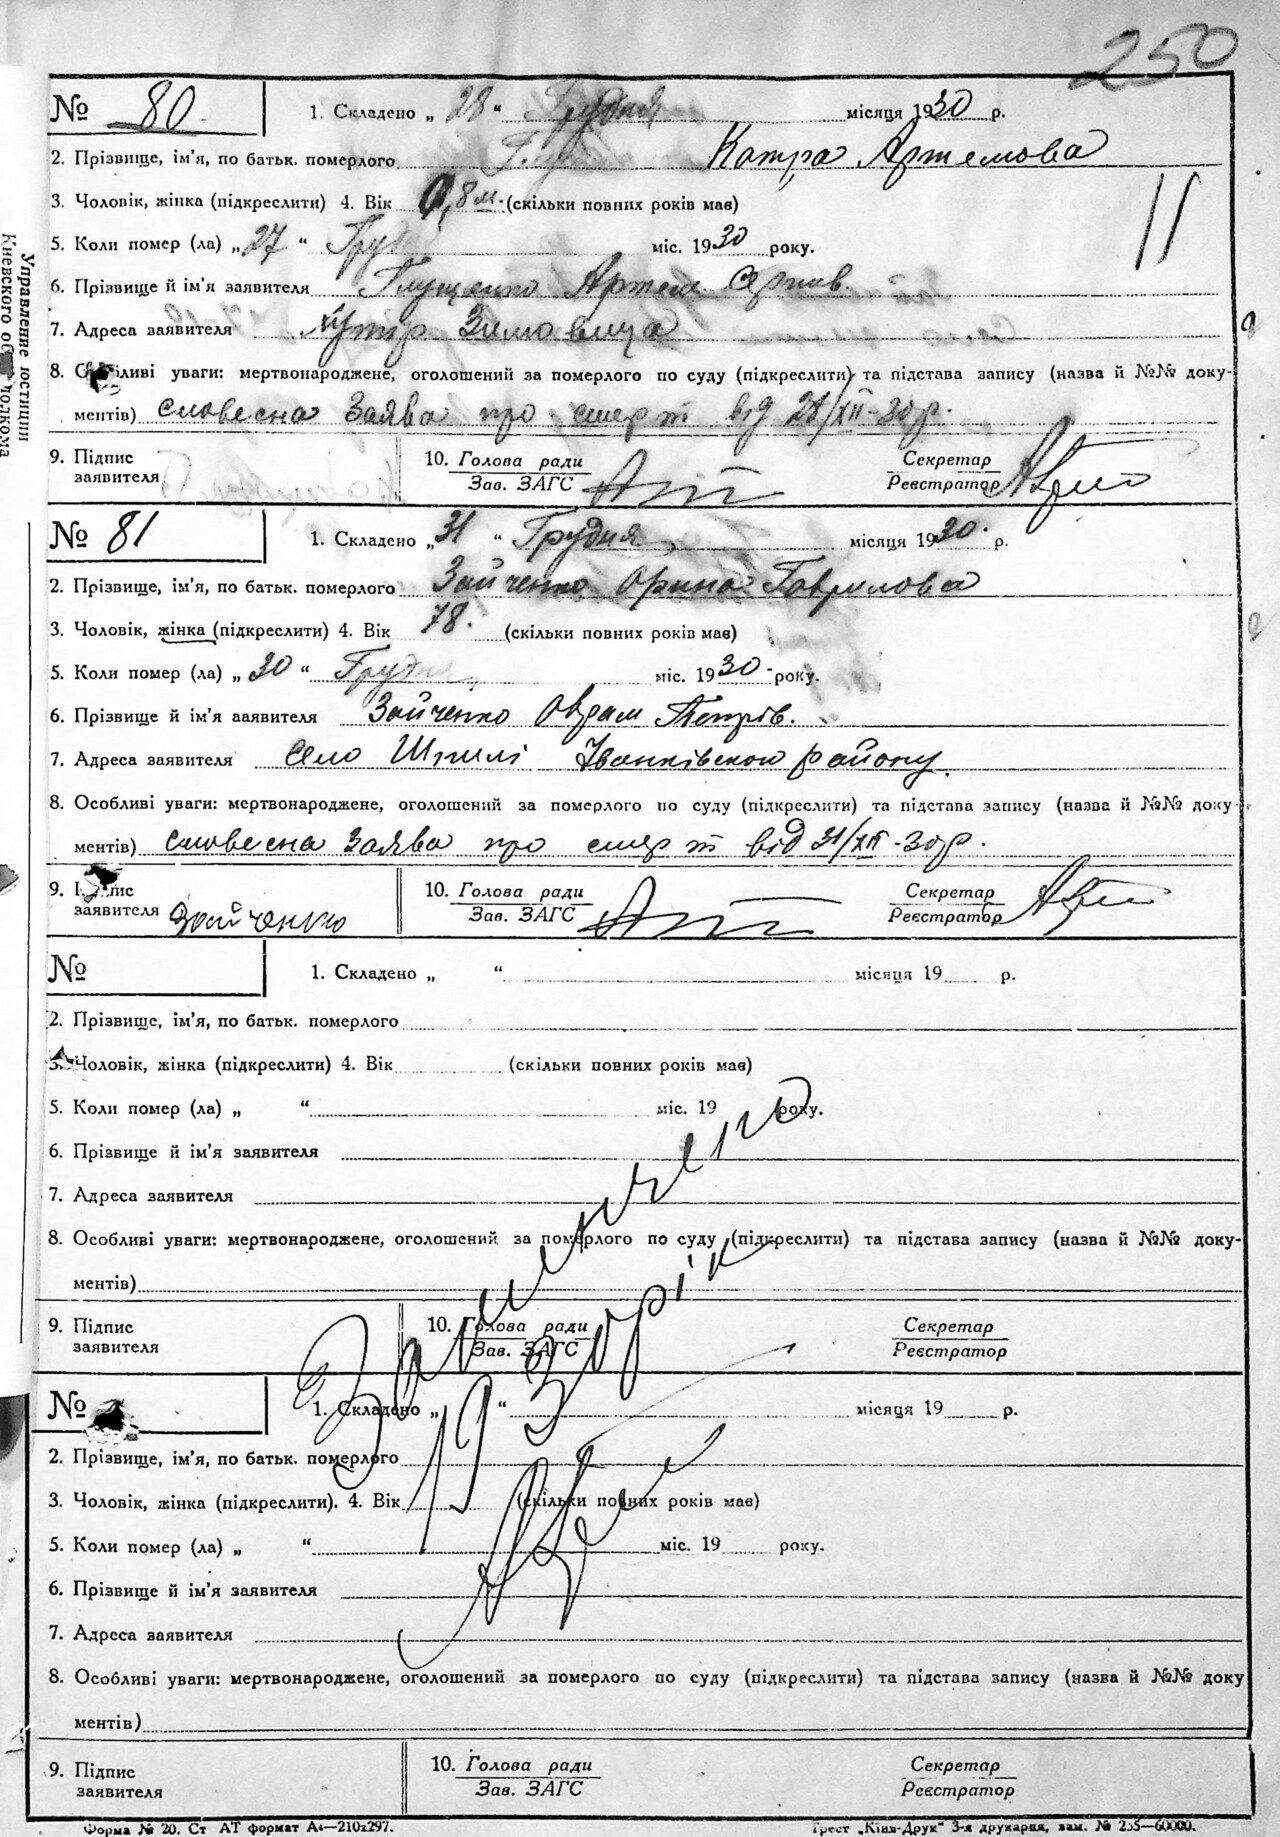 250
№ 80 1. Складено „ 28 “ Грудня місяця 1930 р.
2. Прізвище, ім’я, по батьк. померлого Катра Артемова
3. Чоловік, жінка (підкреслити) 4. Вік 0,8 м. (скільки повних років має)
11
5. Коли помер (ла) „ 27 “ Грудня міс. 1930 року.
6. Прізвище й ім’я заявителя Глущенко Артем
7. Адреса заявителя хутір Зимовища
8. Особливі уваги: мертвонароджене, оголошений за померлого по суду (підкреслити) та підстава запису (назва й №№ доку-
ментів) словесна Заява про смерт від 28/XII-30 р.
9. Підпис заявителя
10. Голова ради
Зав. ЗАГС
Секретар
Реєстратор
Управление юстиции
Киевского облисполкома
№ 81 1. Складено „ 31 “ Грудня місяця 1930 р.
2. Прізвище, ім’я, по батьк. померлого Зайченко Орина Гаврилова
3. Чоловік, жінка (підкреслити) 4. Вік 78. (скільки повних років має)
5. Коли помер (ла) „ 30 “ Грудня міс. 1930 року.
6. Прізвище й ім’я ааявителя Зайченко Оврам Петрів.
7. Адреса заявителя село Шпилі Іванківского району.
8. Особливі уваги: мертвонароджене, оголошений за померлого по суду (підкреслити) та підстава запису (назва й №№ доку-
ментів) словесна Заява про смерт від 31/XII-30 р.
9. Підпис заявителя Зайченко
10. Голова ради
Зав. ЗАГС
Секретар
Реєстратор
№ 1. Складено „ “ місяця 19 р.
2. Прізвище, ім’я, по батьк. померлого
3. Чоловік, жінка (підкреслити) 4. Вік (скільки повних років має)
5. Коли помер (ла) „ “ міс. 19 року.
6. Прізвище й ім’я заявителя
7. Адреса заявителя
8. Особливі уваги: мертвонароджене, оголошений за померлого по суду (підкреслити) та підстава запису (назва й №№ доку-
ментів)
9. Підпис заявителя
10. Голова ради
Зав. ЗАГС
Секретар
Реєстратор
Закінчено
1930 рік
№ 1. Складено „ “ місяця 19 р.
2. Прізвище, ім’я, по батьк. померлого
3. Чоловік, жінка (підкреслити). 4. Вік (скільки повних років має)
5. Коли помер (ла) „ “ міс. 19 року.
6. Прізвище й ім’я заявителя
7. Адреса заявителя
8. Особливі уваги: мертвонароджене, оголошений за померлого по суду (підкреслити) та підстава запису (назва й №№ доку
ментів)
9. Підпис заявителя
10. Голова ради
Зав. ЗАГС
Секретар
Реєстратор
Форма № 20. Ст АТ формат А4—210х297. Трест „Київ-Друк“ 3-я друкарня, зам. № 255—60000.